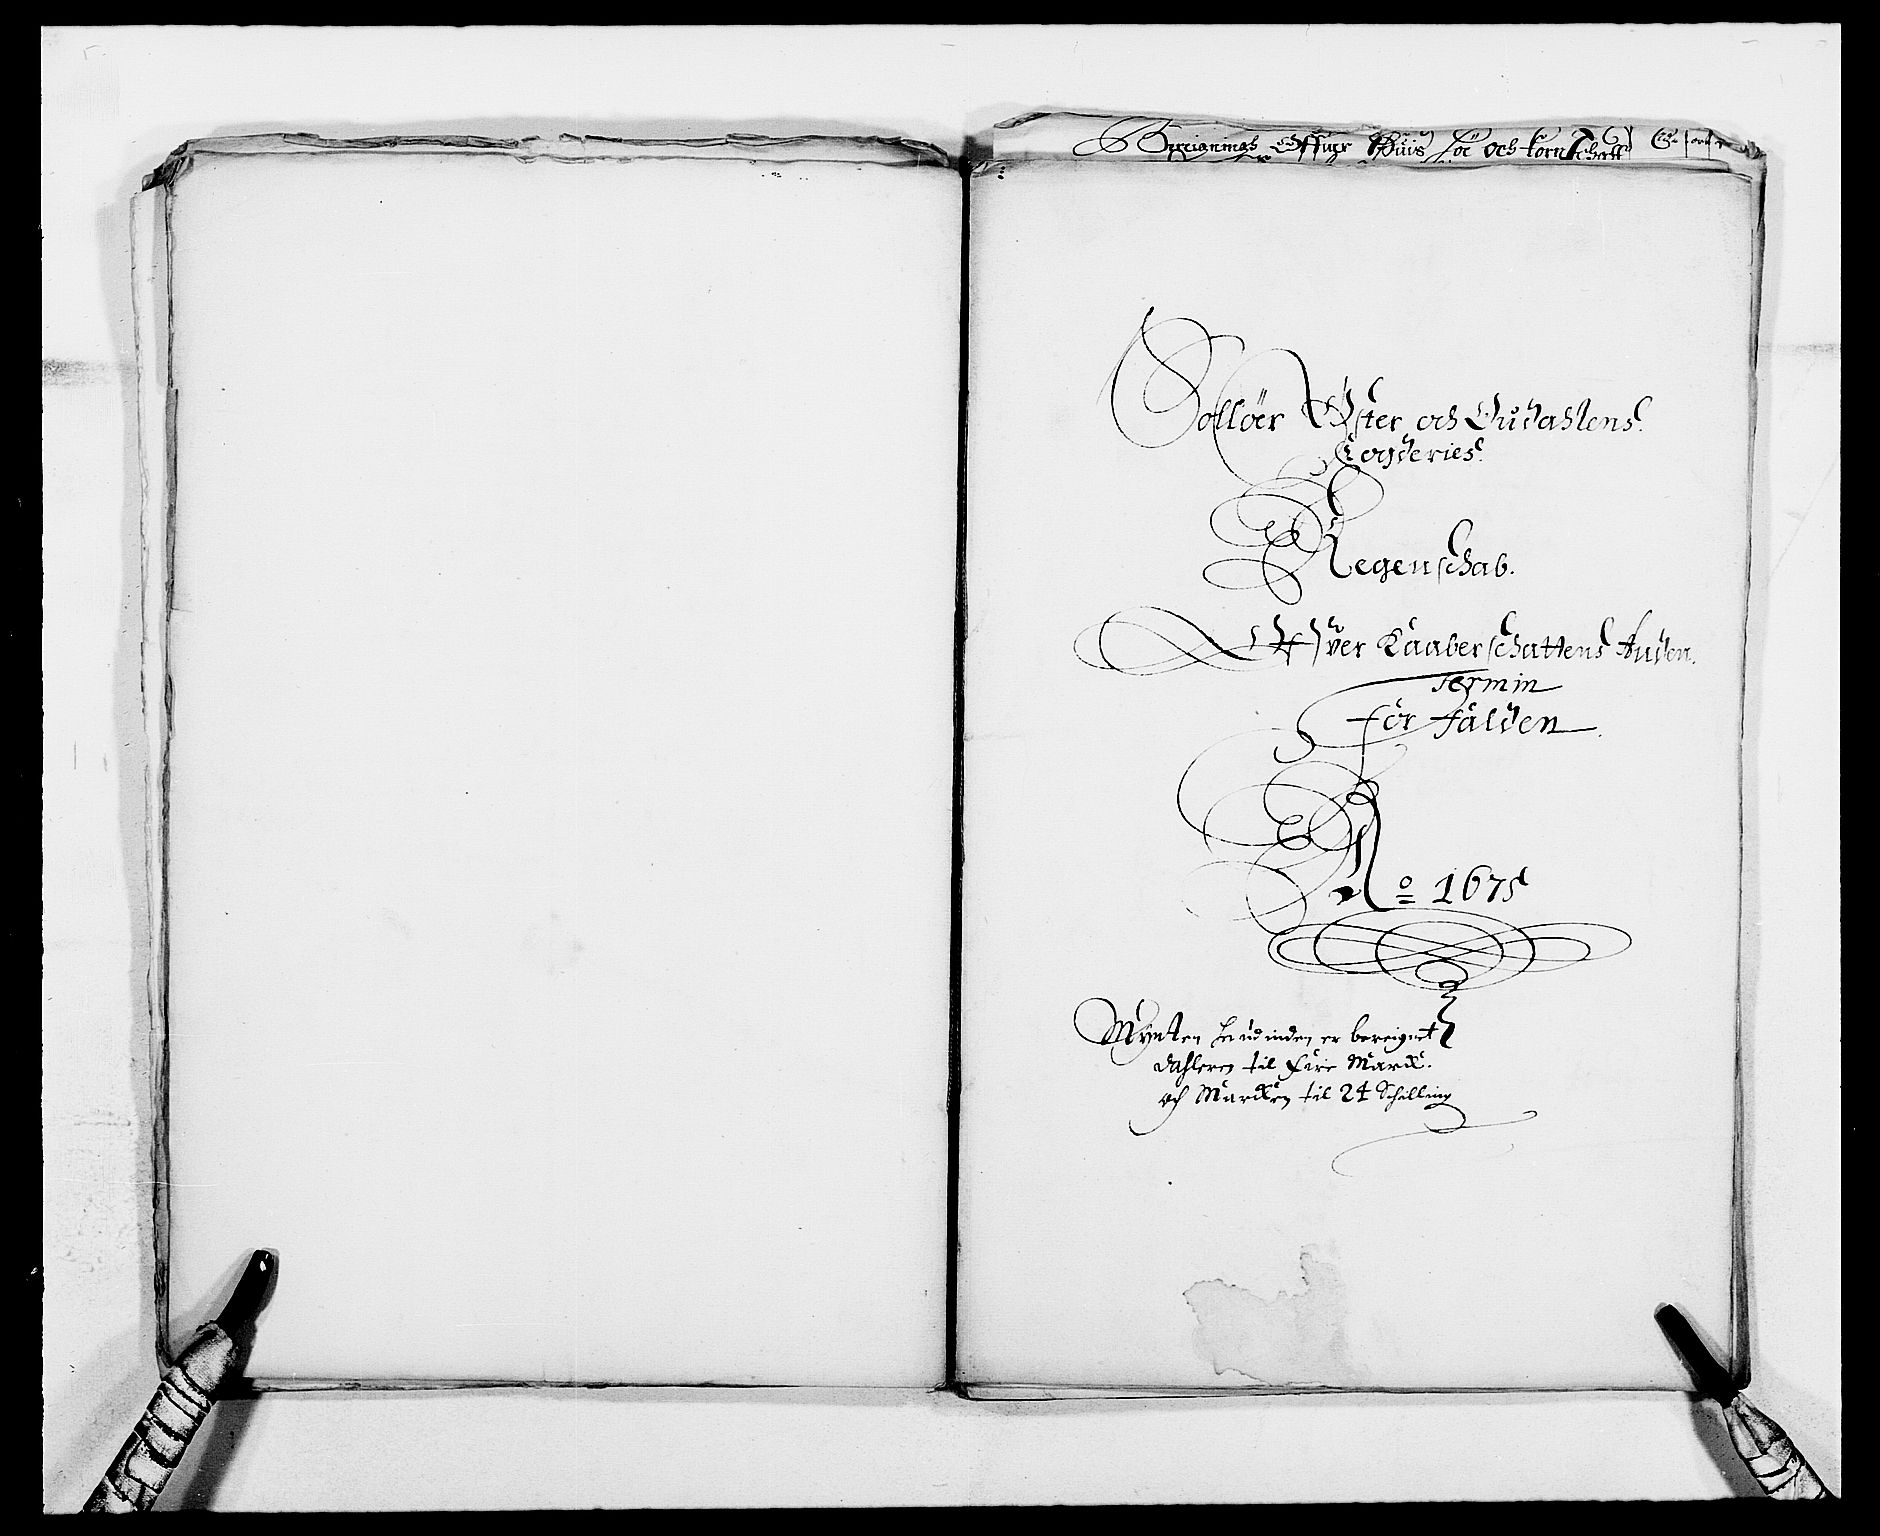 Bereignings Offuer Huus Höe och Korn Schatt
Sollöer Øster och Gudahlens
Fogderies
Regenschab.
Ofver Kaaberschattens Anden
Termin
for Falden
Ao 1675
Mynten her udinden er bereignet
dahleren til fire Marck.
och Marcken til 24 Schilling